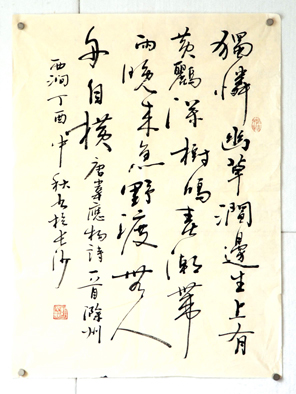 獨憐幽草澗邊生上有
黃鸝深樹鳴春潮帶
雨晚來急野渡無人
舟自橫唐韋應物詩一首滁州
西澗丁酉中秋書於長沙